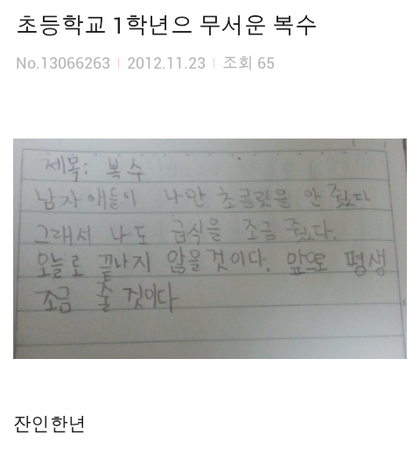 초등학교 1학년으 무서운 복수
No.13066263 | 2012.11.23 | 조회 65
제목: 복수
남자애들이 나만 초콜릿을 안 줬다
그래서 나도 급식을 조금 줬다.
오늘로 끝나지 않을것이다. 앞으로 평생
조금 줄 것이다
잔인한년